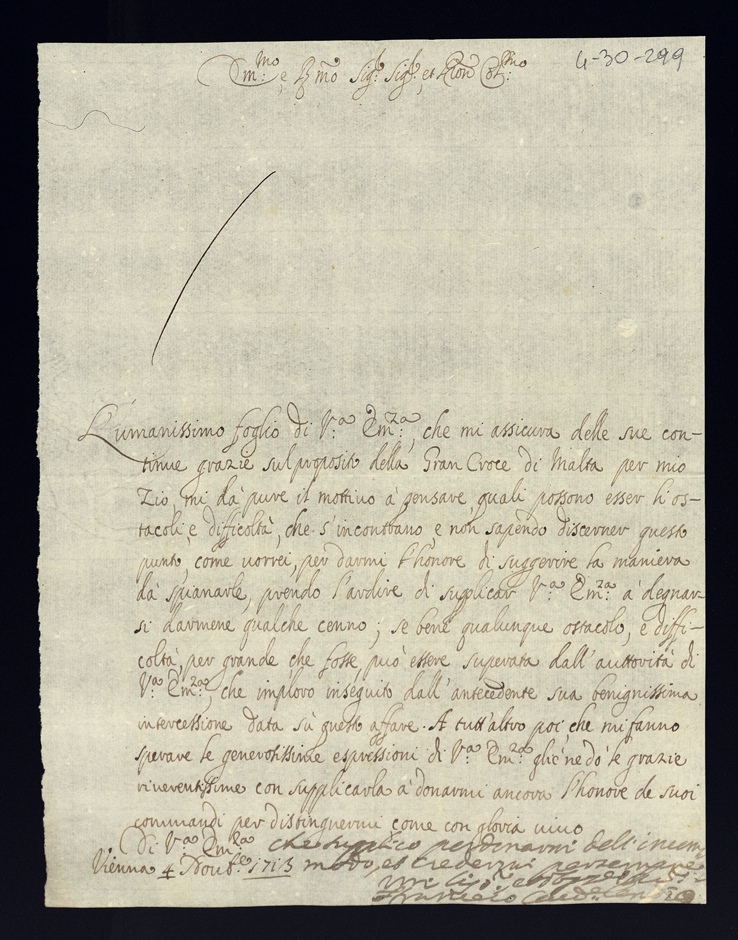 4-30-299
Em:mo, e R.mo Sig.r Sig.r, et Pron Col:mo
L'umanissimo foglio di V.a Em:za, che mi assicura delle sue con-
tinue grazie sul proposito della Gran Croce di Malta per mio
Zio, mi dà pure il mottivo à pensare, quali possono esser li os-
tacoli, e difficoltà, che s'incontrano, e non sapendo discerner questo
punto, come vorrei, per darmi l'honore di suggerire la maniera
dà spianarle, prendo l'ardire di suplicar V.a Em:za à degnar-
si darmene qualche cenno; se bene qualunque ostacolo, e diffi-
coltà, per grande che fosse, può essere superata dall'auttorità di
V.a Em:za, che imploro inseguito dall'antecedente sua benignissima
intercessione data sù questo affare. A tutt'altro poi che mi fanno
sperare le generosissime espressioni di V.a Em:za glie ne dò le grazie
riverentissime con supplicarla à donarmi ancora l'honore de suoi
commandi per distinguermi come con gloria vivo
Di V.a Em:za che suplico perdonarmi dell'
Vienna 4 Novb.re 1713 modo, et credermi